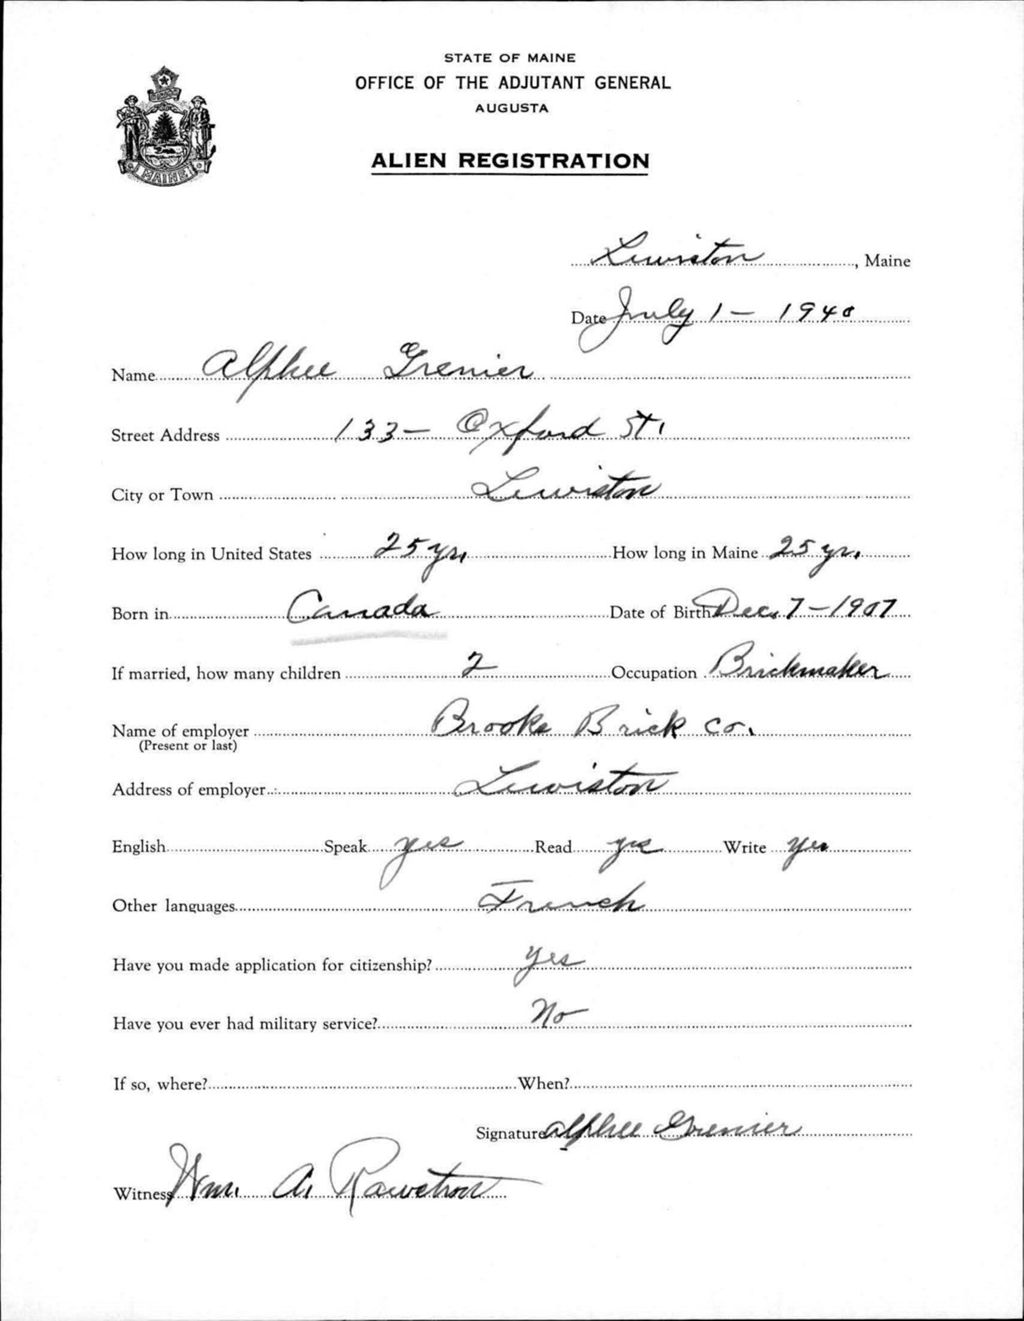 STATE OF MAINE
OFFICE OF THE ADJUTANT GENERAL
AUGUSTA
ALIEN REGISTRATION
MAINE
Lewiston, Maine
Date July 1 - 1940
Name Alphee Grenier
Street Address 133 - Oxford St.
City or Town Lewiston
How long in United States 25 yrs. How long in Maine 25 yr.
Born in Canada Date of Birth Dec. 7 - 1907
If married, how many children 2 Occupation Brickmaker
Name of employer Brooks Brick Co.
(Present or last)
Address of employer Lewiston
English Speak yes Read yes Write yes
Other languages French
Have you made application for citizenship? Yes
Have you ever had military service? No
If so, where? When?
Signature Alphee Grenier
Witness Wm. A.